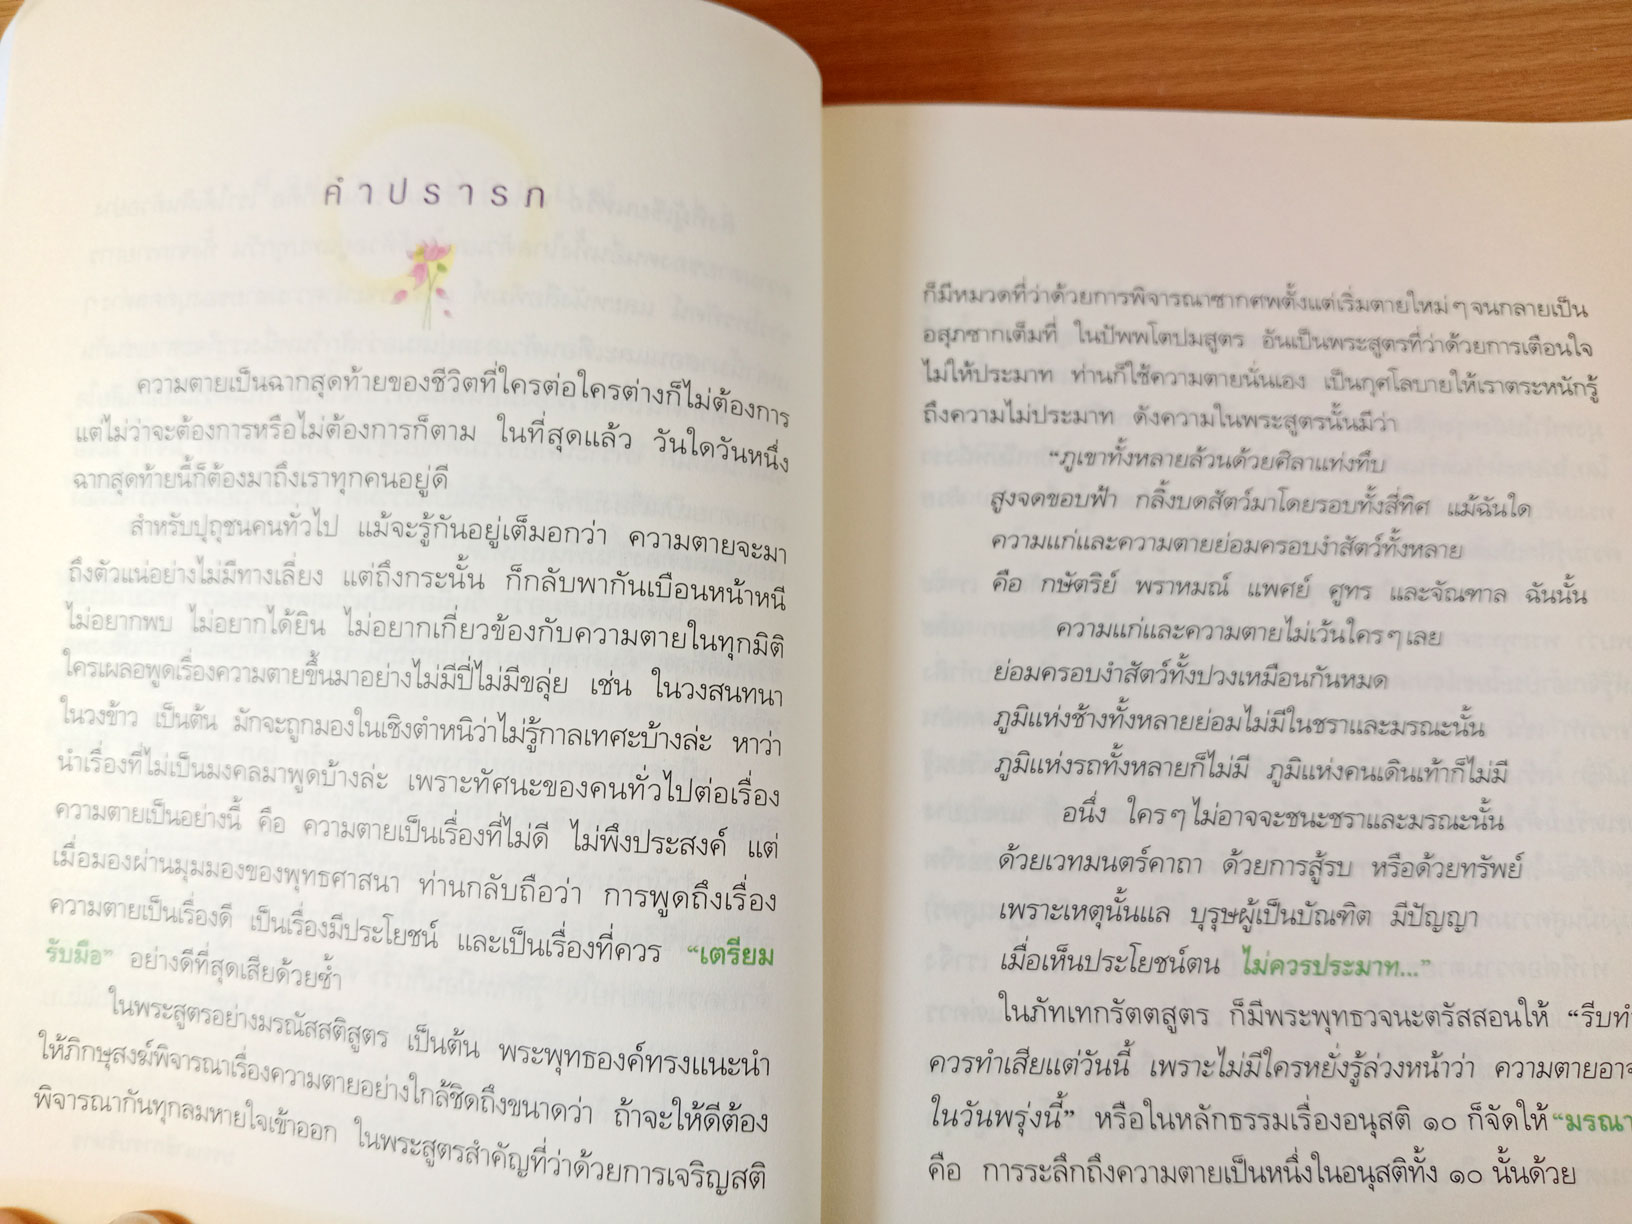 คำปรารภ
ความตายเป็นฉากสุดท้ายของชีวิตที่ใครต่อใครต่างก็ไม่ต้องการ
แต่ไม่ว่าจะต้องการหรือไม่ต้องการก็ตาม ในที่สุดแล้ว วันใดวันหนึ่ง
ฉากสุดท้ายนี้ก็ต้องมาถึงเราทุกคนอยู่ดี
สำหรับปุถุชนคนทั่วไป แม้จะรู้กันอยู่เต็มอกว่า ความตายจะมา
ถึงตัวแน่อย่างไม่มีทางเลี่ยง แต่ถึงกระนั้น ก็กลับพากันเบือนหน้าหนี
ไม่อยากพบ ไม่อยากได้ยิน ไม่อยากเกี่ยวข้องกับความตายในทุกมิติ
ใครเผลอพูดเรื่องความตายขึ้นมาอย่างไม่มีปี่ไม่มีขลุ่ย เช่น ในวงสนทนา
ในวงข้าว เป็นต้น มักจะถูกมองในเชิงตำหนิว่าไม่รู้กาลเทศะบ้างล่ะ หาว่า
นำเรื่องที่ไม่เป็นมงคลมาพูดบ้างล่ะ เพราะทัศนะของคนทั่วไปต่อเรื่อง
ความตายเป็นอย่างนี้ คือ ความตายเป็นเรื่องที่ไม่ดี ไม่พึงประสงค์ แต่
เมื่อมองผ่านมุมมองของพุทธศาสนา ท่านกลับถือว่า การพูดถึงเรื่อง
ความตายเป็นเรื่องดี เป็นเรื่องมีประโยชน์ และเป็นเรื่องที่ควร “เตรียม
รับมือ” อย่างดีที่สุดเสียด้วยซ้ำ
ในพระสูตรอย่างมรณัสสติสูตร เป็นต้น พระพุทธองค์ทรงแนะนำ
ให้ภิกษุสงฆ์พิจารณาเรื่องความตายอย่างใกล้ชิดถึงขนาดว่า ถ้าจะให้ดีต้อง
พิจารณากันทุกลมหายใจเข้าออก ในพระสูตรสำคัญที่ว่าด้วยการเจริญสติ
ก็มีหมวดที่ว่าด้วยการพิจารณาซากศพตั้งแต่เริ่มตายใหม่ๆ จนกลายเป็น
อสุภซากเต็มที่ ในปัพพโตปมสูตร อันเป็นพระสูตรที่ว่าด้วยการเตือนใจ
ไม่ให้ประมาท ท่านก็ใช้ความตายนั่นเอง เป็นกุศโลบายให้เราตระหนักรู้
ถึงความไม่ประมาท ดังความในพระสูตรนั้นมีว่า
“ภูเขาทั้งหลายล้วนด้วยศิลาแท่งทึบ
สูงจดขอบฟ้า กลิ้งบดสัตว์มาโดยรอบทั้งสี่ทิศ แม้ฉันใด
ความแก่และความตายย่อมครอบงำสัตว์ทั้งหลาย
คือ กษัตริย์ พราหมณ์ แพศย์ ศูทร และจัณฑาล ฉันนั้น
ความแก่และความตายไม่เว้นใครๆ เลย
ย่อมครอบงำสัตว์ทั้งปวงเหมือนกันหมด
ภูมิแห่งช้างทั้งหลายย่อมไม่มีในชราและมรณะนั้น
ภูมิแห่งรถทั้งหลายก็ไม่มี ภูมิแห่งคนเดินเท้าก็ไม่มี
อนึ่ง ใครๆ ไม่อาจจะชนะชราและมรณะนั้น
ด้วยเวทมนตร์คาถา ด้วยการสู้รบ หรือด้วยทรัพย์
เพราะเหตุนั้นแล บุรุษผู้เป็นบัณฑิต มีปัญญา
เมื่อเห็นประโยชน์ตน ไม่ควรประมาท...”
ในภัทเทกรัตตสูตร ก็มีพระพุทธวจนะตรัสสอนให้ “รีบทำ
ควรทำเสียแต่วันนี้ เพราะไม่มีใครหยั่งรู้ล่วงหน้าว่า ความตายอาจ
ในวันพรุ่งนี้” หรือในหลักธรรมเรื่องอนุสติ ๑๐ ก็จัดให้ “มรณา
คือ การระลึกถึงความตายเป็นหนึ่งในอนุสติทั้ง ๑๐ นั้นด้วย